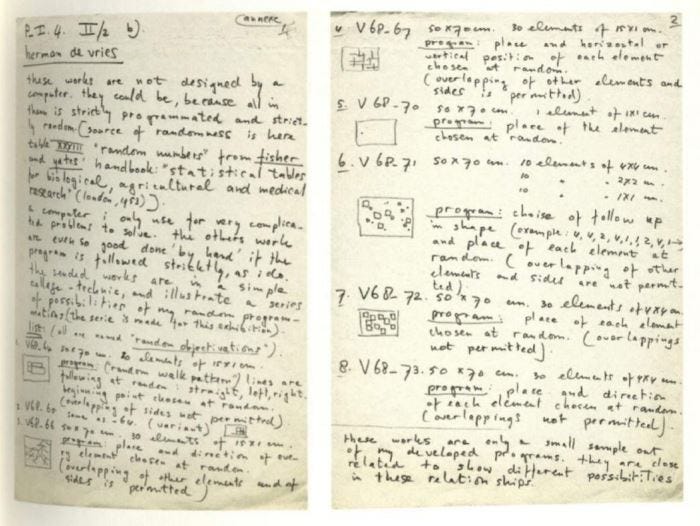 P.I.4. II/2 b).
(annexe
herman de vries
these works are not designed by a
computer. they could be, because all in
them is strictly programmated and strict-
ly random. (source of randomness is here
table XXXIII "random numbers" from fisher
and yates' handbook: "statistical tables
for biological, agricultural and medical
research" (london, 1953)).
a computer i only use for very complica-
ted problems to solve. the others work
are even so good done 'by hand' if the
program is followed striktly, as i do.
the sended works are in a simple
collage-technic, and illustrate a series
of possibilities of my random program-
mations (the serie is made for this exhibition).
list: (all are named "random objectivations").
1. V68-64 50x70 cm. 20 elements of 15x1 cm.
program: (random walk pattern) lines are
following at random: straight, left, right.
beginning point chosen at random.
(overlapping of sides not permitted)
2. V68-65 same as -64. (variant)
3. V68-66 50x70 cm. 30 elements of 15x1 cm.
program: place and direction of eve-
ry element chosen at random.
(overlapping of other elements and of
sides is permitted)
2
4. V68-67 50x70 cm. 30 elements of 15x1 cm.
program: place and horizontal or
vertical position of each element
chosen at random.
(overlapping of other elements and
sides is permitted).
5. V68-70 50x70 cm. 1 element of 1x1 cm.
program: place of the element
chosen at random.
6. V68-71 50x70 cm. 10 elements of 4x4 cm.
10 " " 2x2 cm.
10 " " 1x1 cm.
program: choise of follow up
in shape (example: 4,4,2,4,1,1,2,4,1→
and place of each element at
random. (overlapping of other
elements and sides are not permit-
ted).
7. V68-72. 50x70 cm. 30 elements of 4x4 cm.
program: place of each element
chosen at random. (overlappings
not permitted).
8. V68-73. 50x70 cm. 30 elements of 4x4 cm.
program: place and direction
of each element chosen at random.
(overlappings not permitted).
these works are only a small sample out
of my developed programs. they are close
related to show different possibilities
in these relationships.